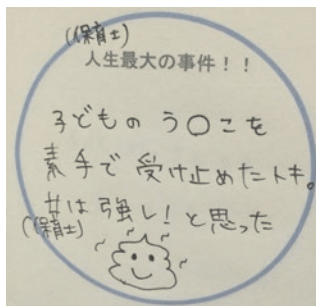 ((保育士)
人生最大の事件！！
子どものう〇こを
素手で受け止めたトキ。
女は強し！と思った
((保育士)